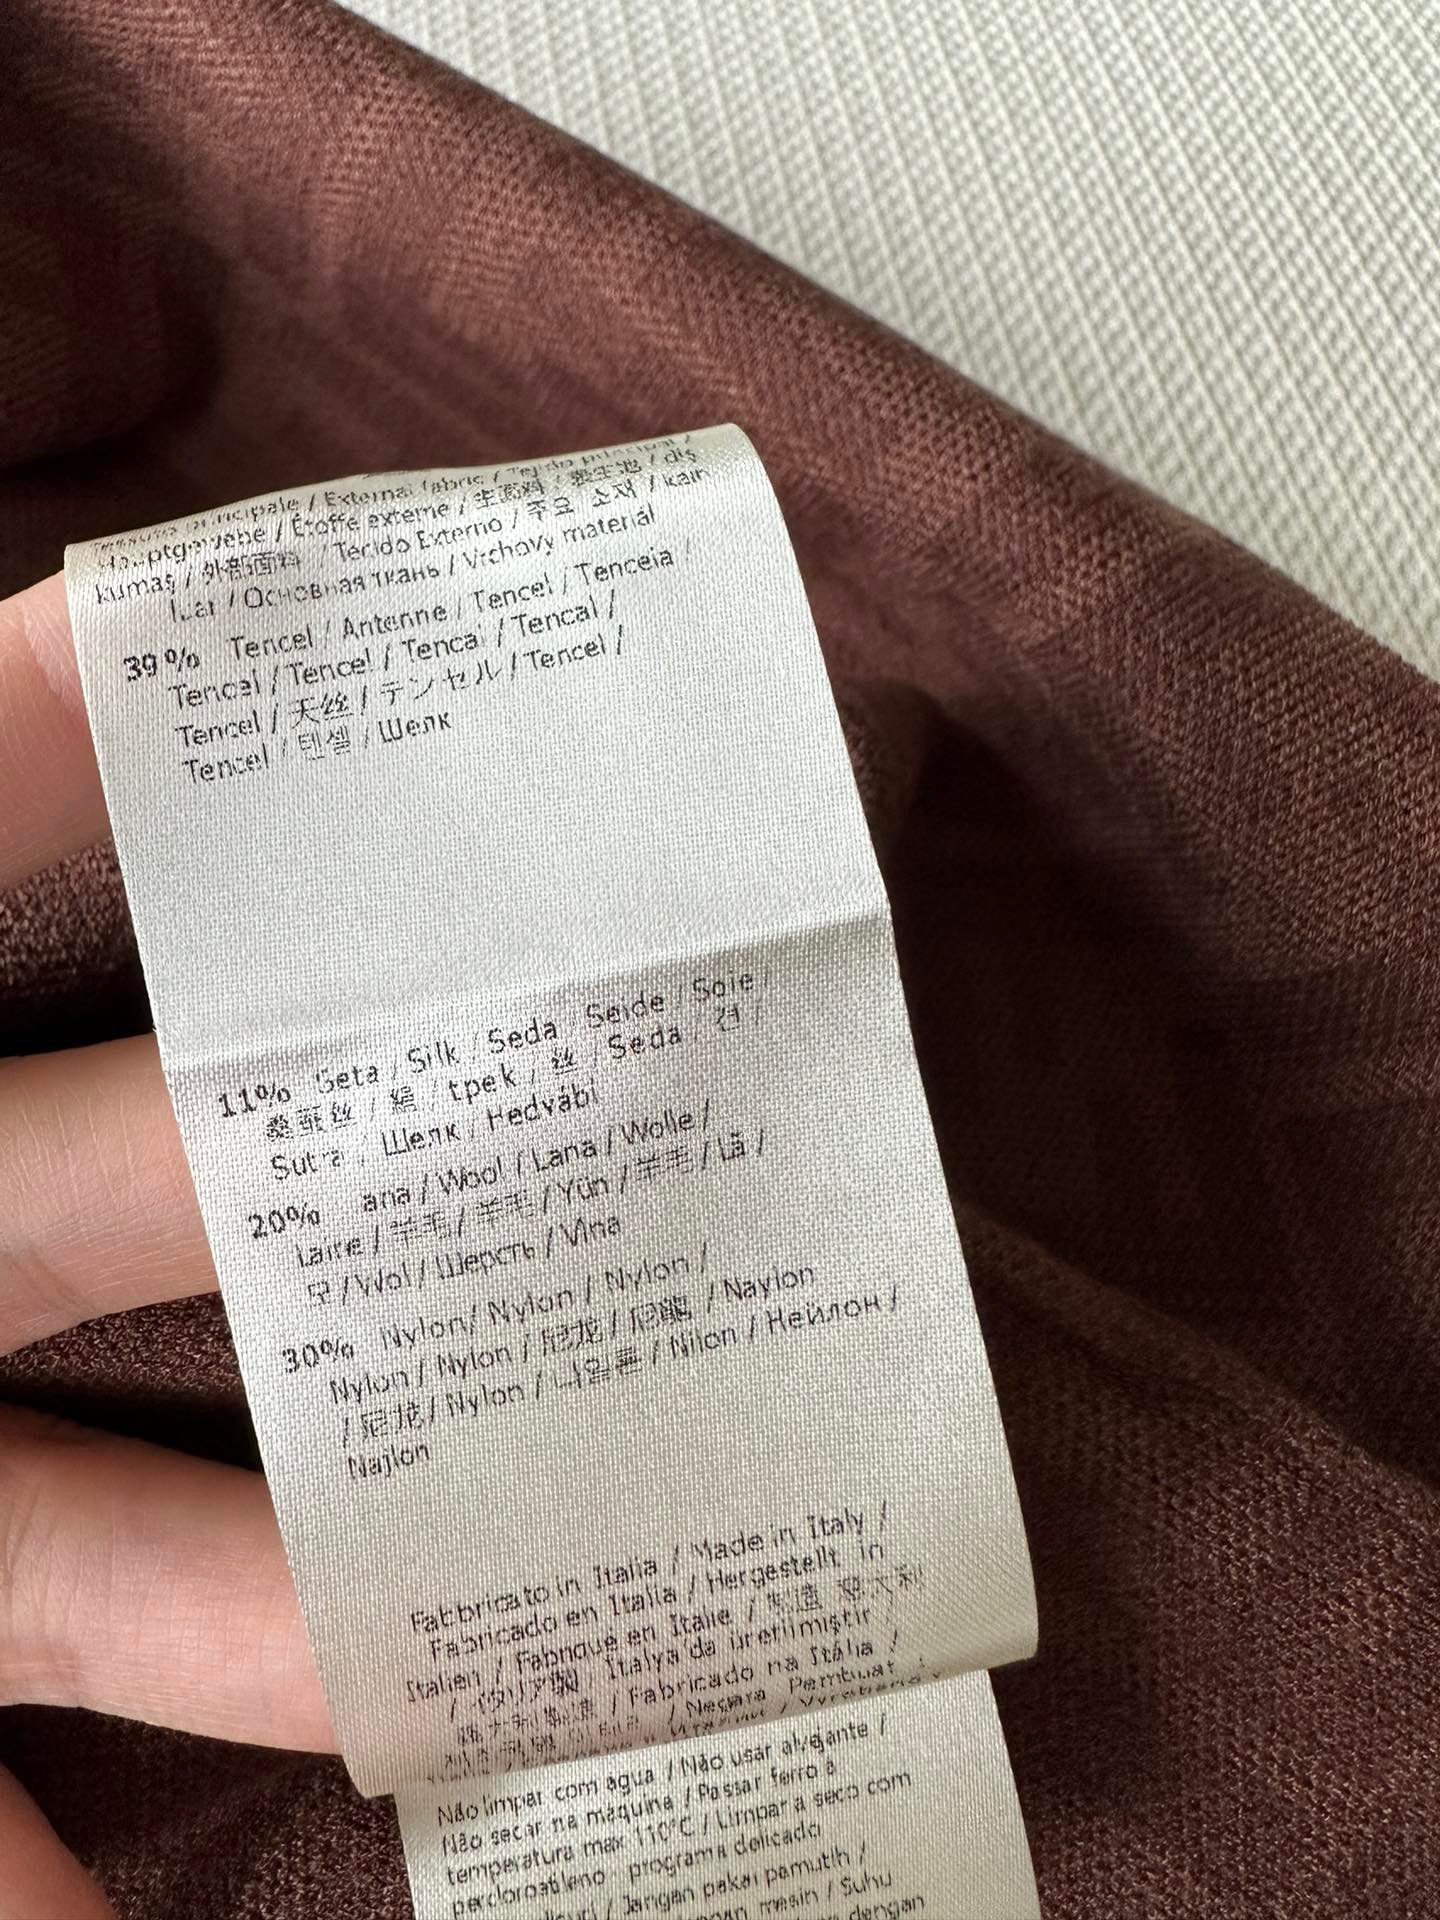 / External fabric / Tejido principal /
/ Étoffe externe / 主面料 / 養生池 / dış
kumaş / 外部面料 / Tecido Externo / 주요 소재 / kain
/ Основная ткань / Vrchový materiál
39% Tencel / Antenne / Tencel / Tenceia /
Tencel / Tencel / Tencal / Tencal /
Tencel / 天丝 / テンセル / Tencel /
Tencel / 텐셀 / Шелк
11% Seta / Silk / Seda / Seide / Soie /
桑蚕丝 / / tpek / 丝 / Seda / 견 /
Sutra / Шелк / Hedvábí
20% ana / Wool / Lana / Wolle /
Laire / 羊毛 / 羊毛 / Yün / 羊毛 / Lã /
모 / Wol / Шерсть / Vlna
30% Nylon / Nylon / Nylon /
Nylon / Nylon / 尼龙 / 尼龍 / Naylon
/ 尼龙 / Nylon / 나일론 / Nilon / Нейлон /
Najlon
Fabbricato in Italia / Made in Italy /
Fabricado en Italia / Hergestellt in
Italien / Fabriqué en Italie / 制造 意大利
/ イタリア製 / İtalya'da üretilmiştir
/ Fabricado na Itália /
/ Negara Pembuat :
Não limpar com agua / Não usar alvejante /
Não secar na maquina / Passar ferro à
temperatura max 110°C / Limpar a seco com
percloroatileno - programa delicado
/ Jangan pakai pemutih /
mesin / Suhu
dengan